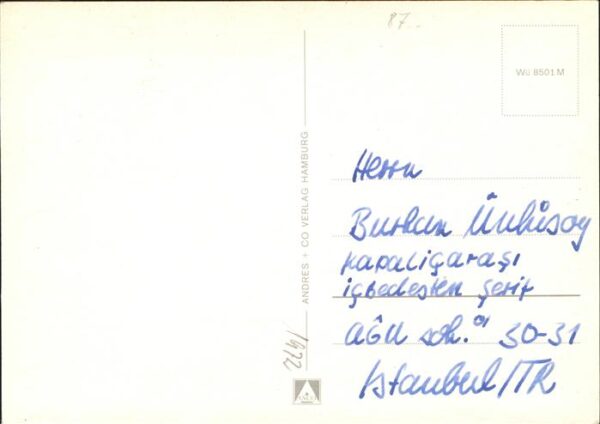 87.
Wü 8501 M
ANDRES + CO VERLAG HAMBURG
1972
Herrn
Burhan Ünlüsoy
Kapaliçaraşı
içbedesten Şerif
AĞU sok. 30-31
Istanbul/TR